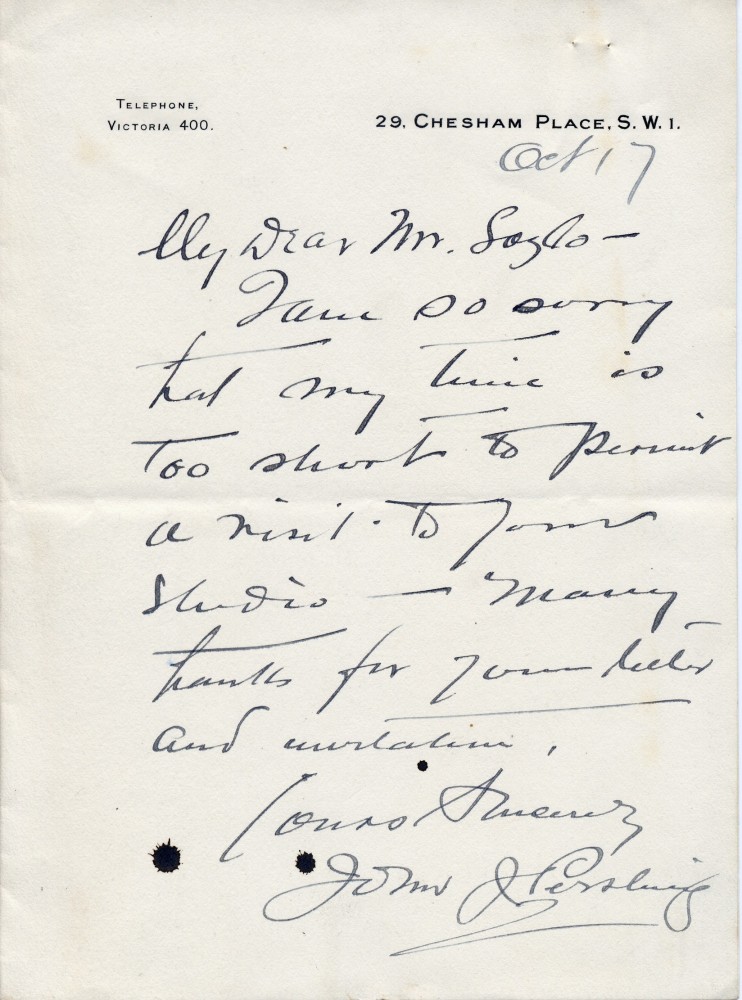 TELEPHONE,
VICTORIA 400.
29, CHESHAM PLACE, S. W. 1.
Oct 17
My Dear Mr.
I am so sorry
that my time is
too short to permit
a visit to your
studio — Many
thanks for your letter
and invitation.
Yours Sincerely
John J Pershing